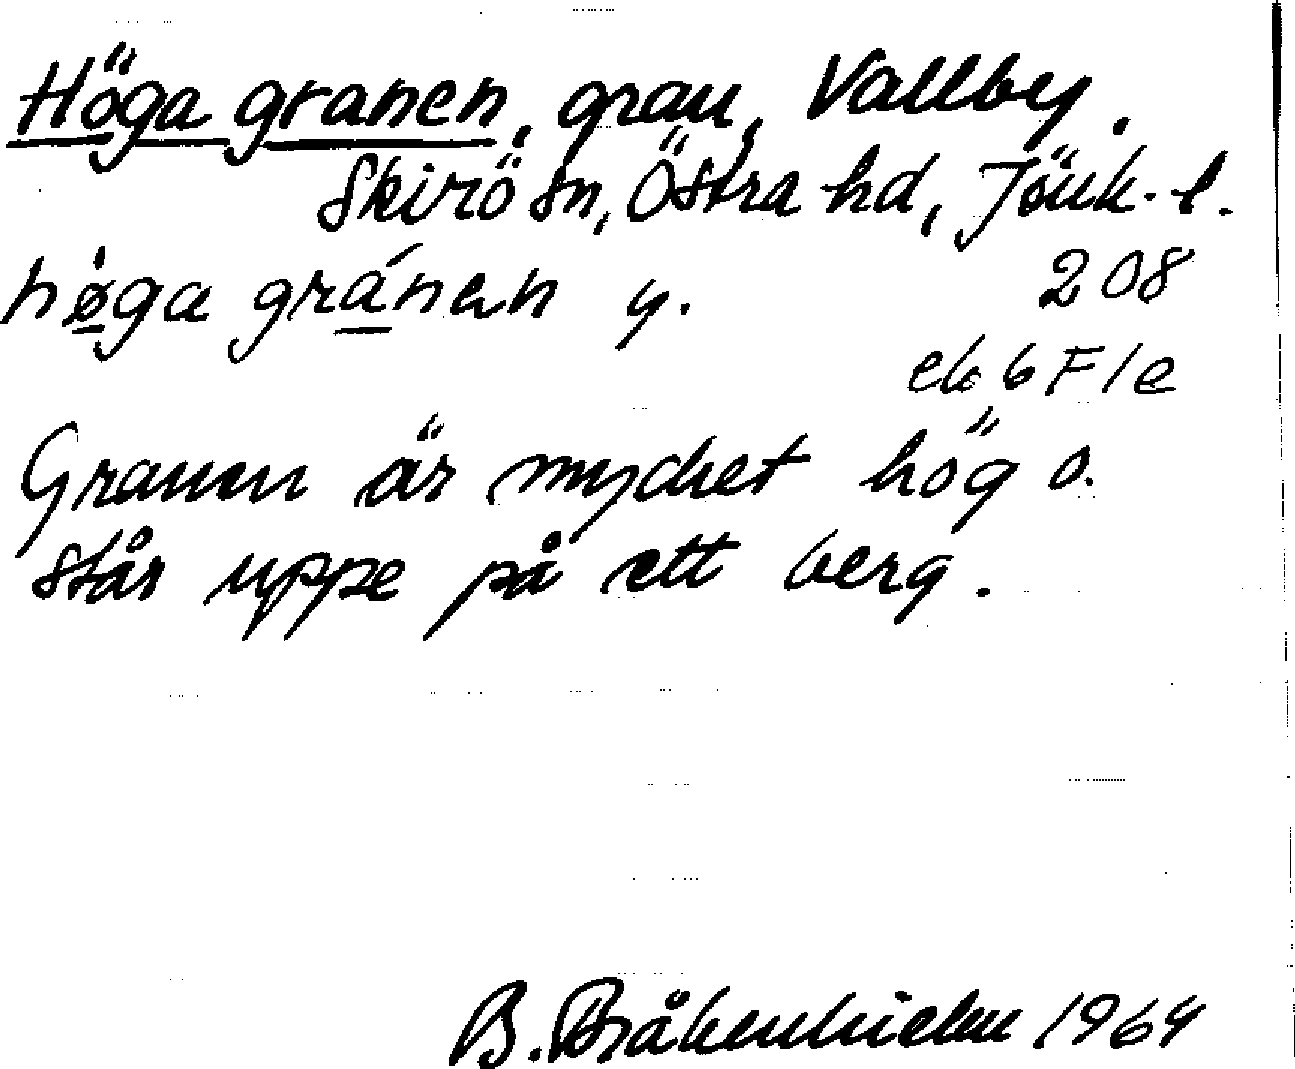 Höga granen, gran, Vallby.
Skirö sn, Östra hd, Jönk. l.
hǿ̱ga grá̱nan y.
208
ek 6 F 1 e
Granen är mycket hög o.
står uppe på ett berg.
B. Bråkenhielm 1964